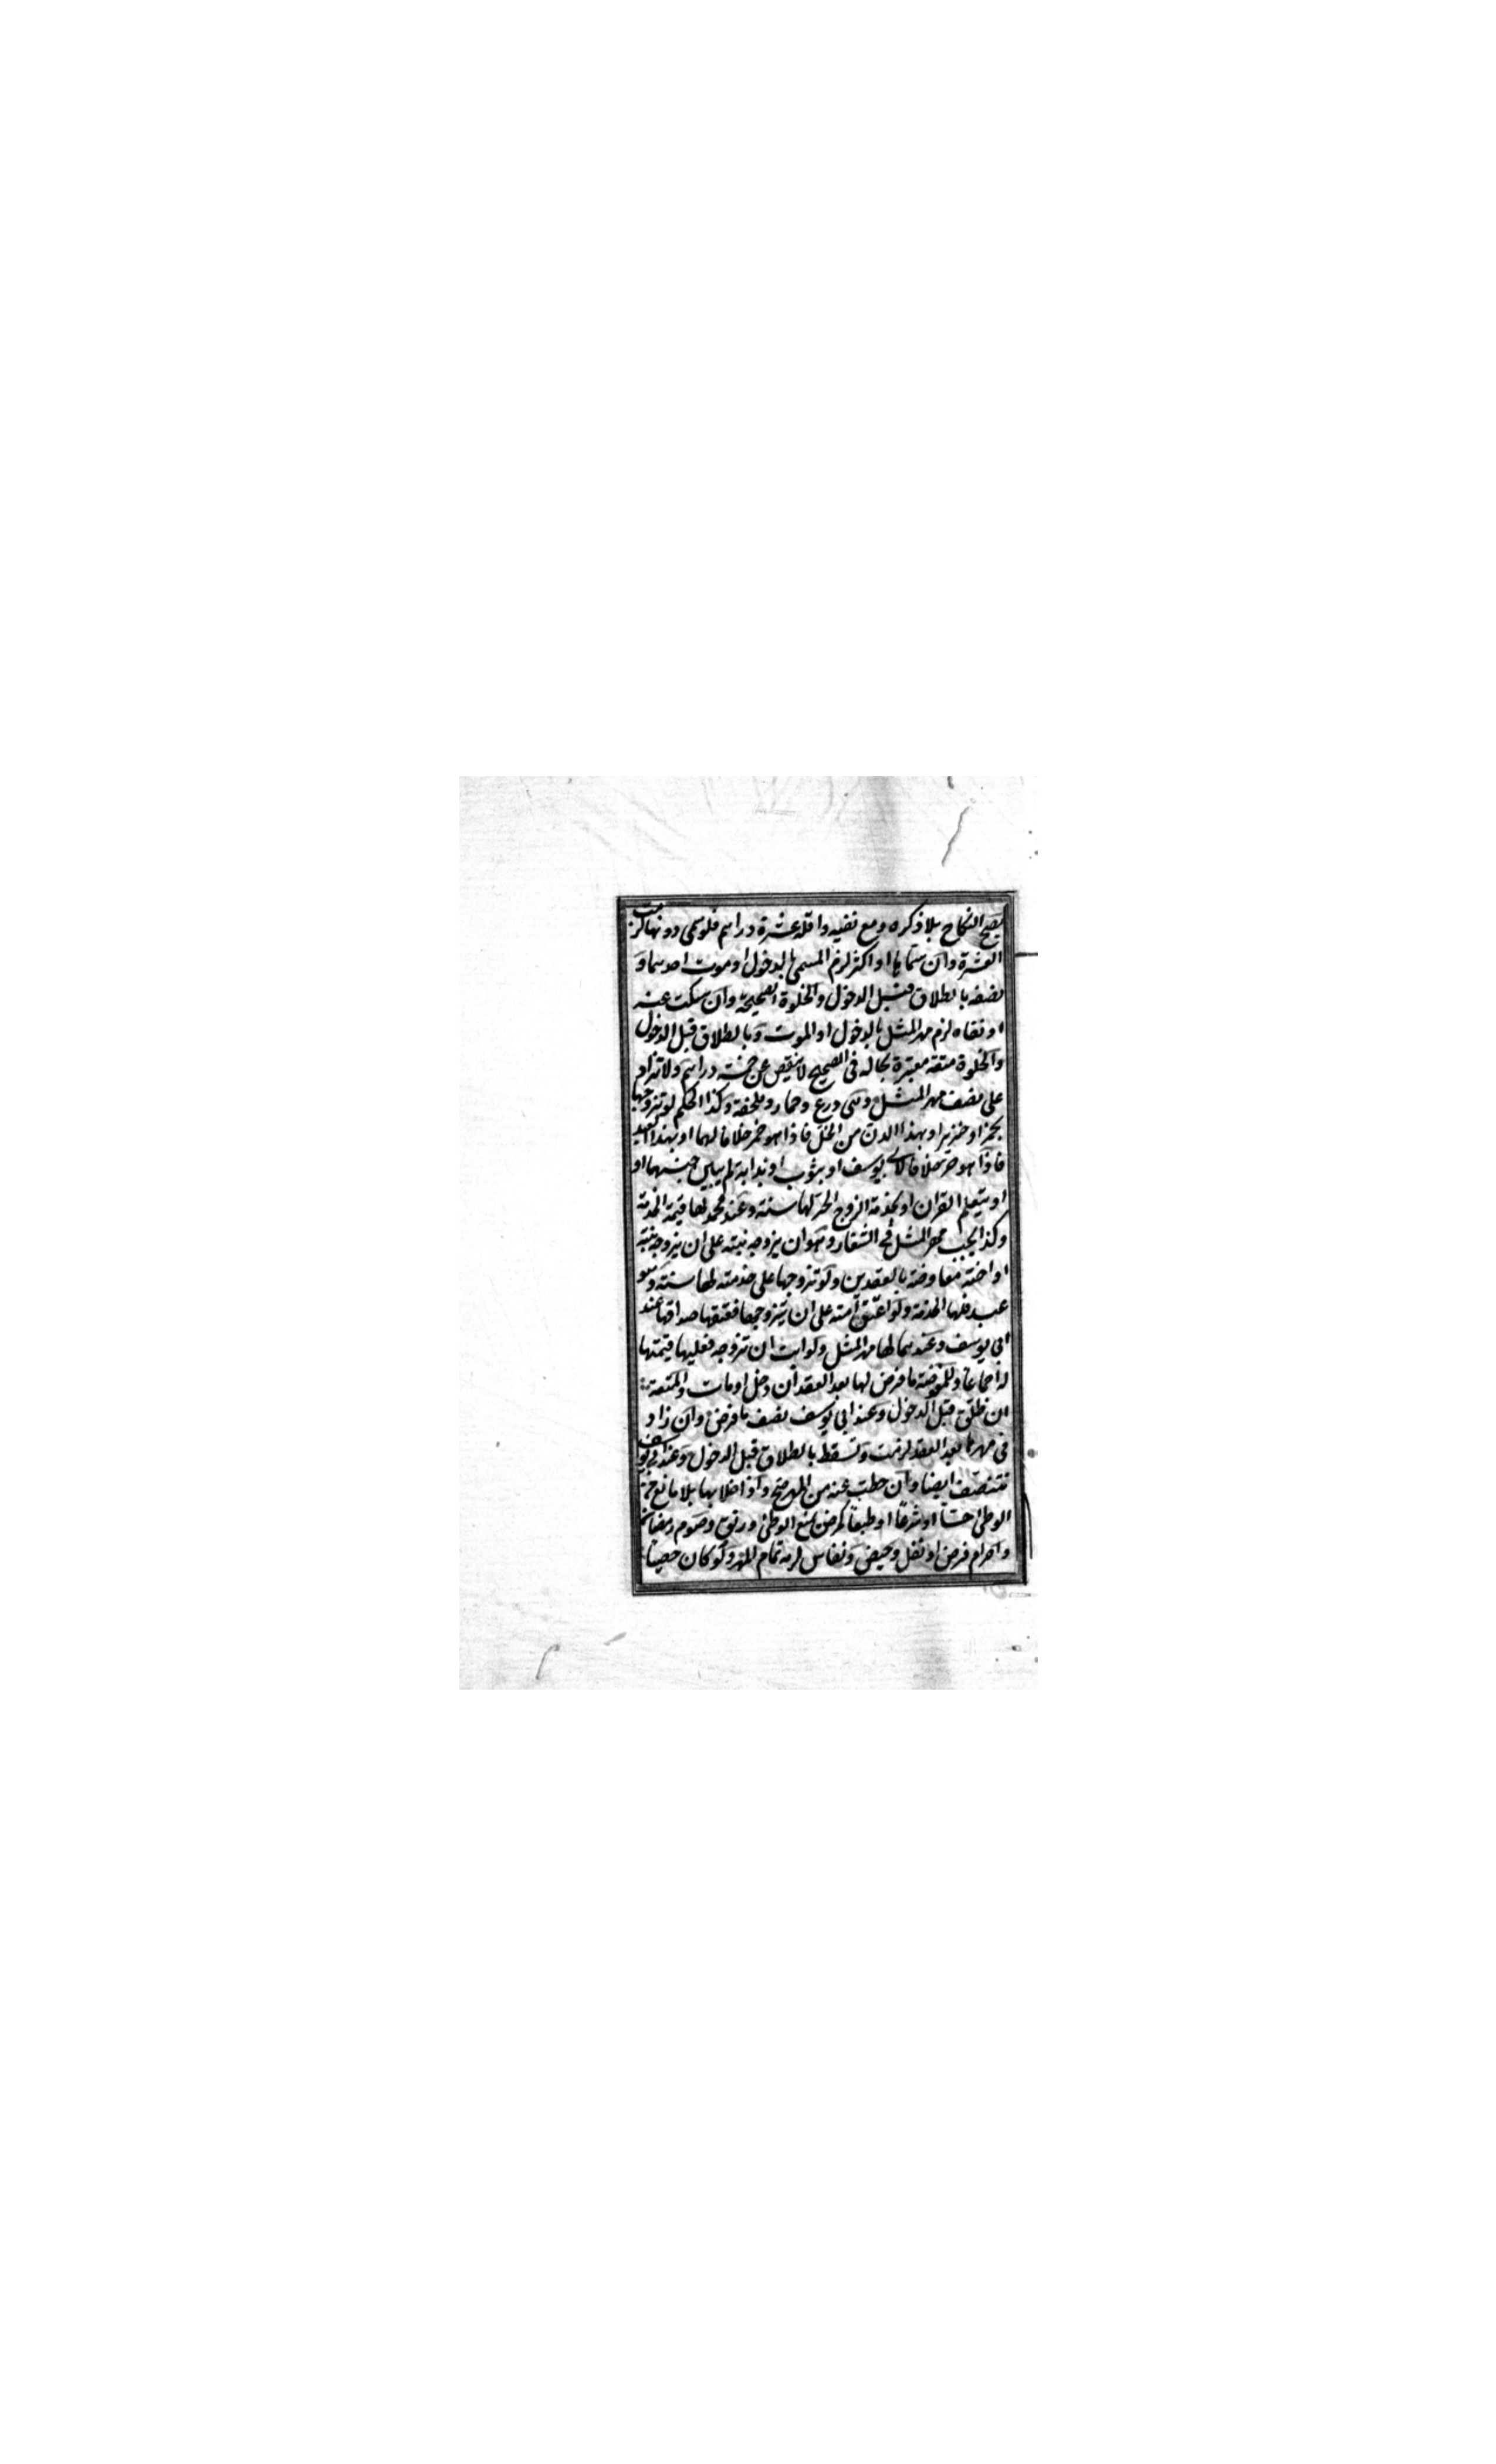 يصح النكاح بلا ذكره ومع نفيه واقله عشرة دراهم فلو سمى دونها لزمت
العشرة وان سماها او اكثر لزم المسمى بالدخول او موت احدهما و
نصفه بالطلاق قبل الدخول والخلوة الصحيحة وان سكت عنه
او نفاه لزم مهر المثل بالدخول او الموت وبالطلاق قبل الدخول
والخلوة متعة معتبرة بحاله فى الصحيح لا تنقص عن خمسة دراهم ولا تزاد
على نصف مهر المثل وهى درع وخمار وملحفة وكذا الحكم لو تزوجها
بخمر او خنزير او بهذا الدن من الخل فاذا هو خمر خلافا لهما او بهذا العبد
فاذا هو حر خلافا لابى يوسف او بثوب او بدابة لم يبين جنسهما او
او بتعليم القران او بخدمة الزوج الحر لها سنة وعند محمد لها قيمة الخدمة
وكذا يجب مهر المثل فى الشغار وهو ان يزوجه بنته على ان يزوجه بنته
او اخته معاوضة بالعقدين ولو تزوجها على خدمته لها سنة وهو
عبد فلها الخدمة ولو اعتق امته على ان يتزوجها فعتقها صداقها عند
ابى يوسف وعندهما لها مهر المثل ولو ابت ان تزوجه فعليها قيمتها
له اجماعا وللمفوضة ما فرض لها بعد العقد ان دخل او مات والمتعة
ان طلق قبل الدخول وعند ابى يوسف نصف ما فرض وان زاد
فى مهرها بعد العقد لزمت وتسقط بالطلاق قبل الدخول وعند ابى يوسف
تتنصف ايضا وان حطت عنه من المهر صح واذا خلا بها بلا مانع من
الوطئ حسا او شرعا او طبعا كمرض يمنع الوطئ ورتق وصوم رمضان
واحرام فرض او نفل وحيض ونفاس لزمه تمام المهر ولو كان خصيا